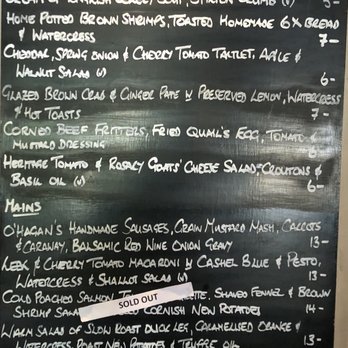 Home Potted Brown Shrimps, Toasted Homemade 6X Bread
& Watercress 7-
Cheddar, Spring Onion & Cherry Tomato Tartlet, Apple &
Walnut Salad (v) 6-
Glazed Brown Crab & Ginger Pate w Preserved Lemon, Watercress
& Hot Toasts 7-
Corned Beef Fritters, Fried Quail's Egg, Tomato &
Mustard Dressing 6-
Heritage Tomato & Rosary Goats' Cheese Salad-Croutons &
Basil Oil (v) 6-
Mains
O'Hagan's Handmade Sausages, Grain Mustard Mash, Carrots
& Caraway, Balsamic Red Wine Onion Gravy 13-
Leek & Cherry Tomato Macaroni w Cashel Blue & Pesto,
Watercress & Shallot Salad (v) 13-
Cold Poached Salmon SOLD OUT Shaved Fennel & Brown
Shrimp Cornish New Potatoes 14-
Warm Salad of Slow Roast Duck Leg, Caramelised Orange &
Watercress, Roast New Potatoes & Truffle Oil